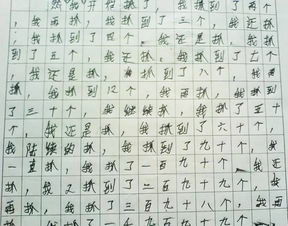 然我开始抓了，我抓到了两个
，我再抓，我抓到了三个，我还抓
，我抓到了四个，我还是抓，我抓
到了五个，我还抓，我抓到了七个
，我还是抓，我抓到了八个，我再
抓，我抓到12个，我再抓，我抓到
了三十个，我继续抓，我抓了五十
个，我还是抓，我抓到了六十个，
我陆续的抓，我抓到了九十个，我
一直抓，我抓了一百九十个，我还
抓，我又抓到了二百九十九个，我
再抓，我抓了三百九十八个，我再
抓，我抓了一千九百九十九个，